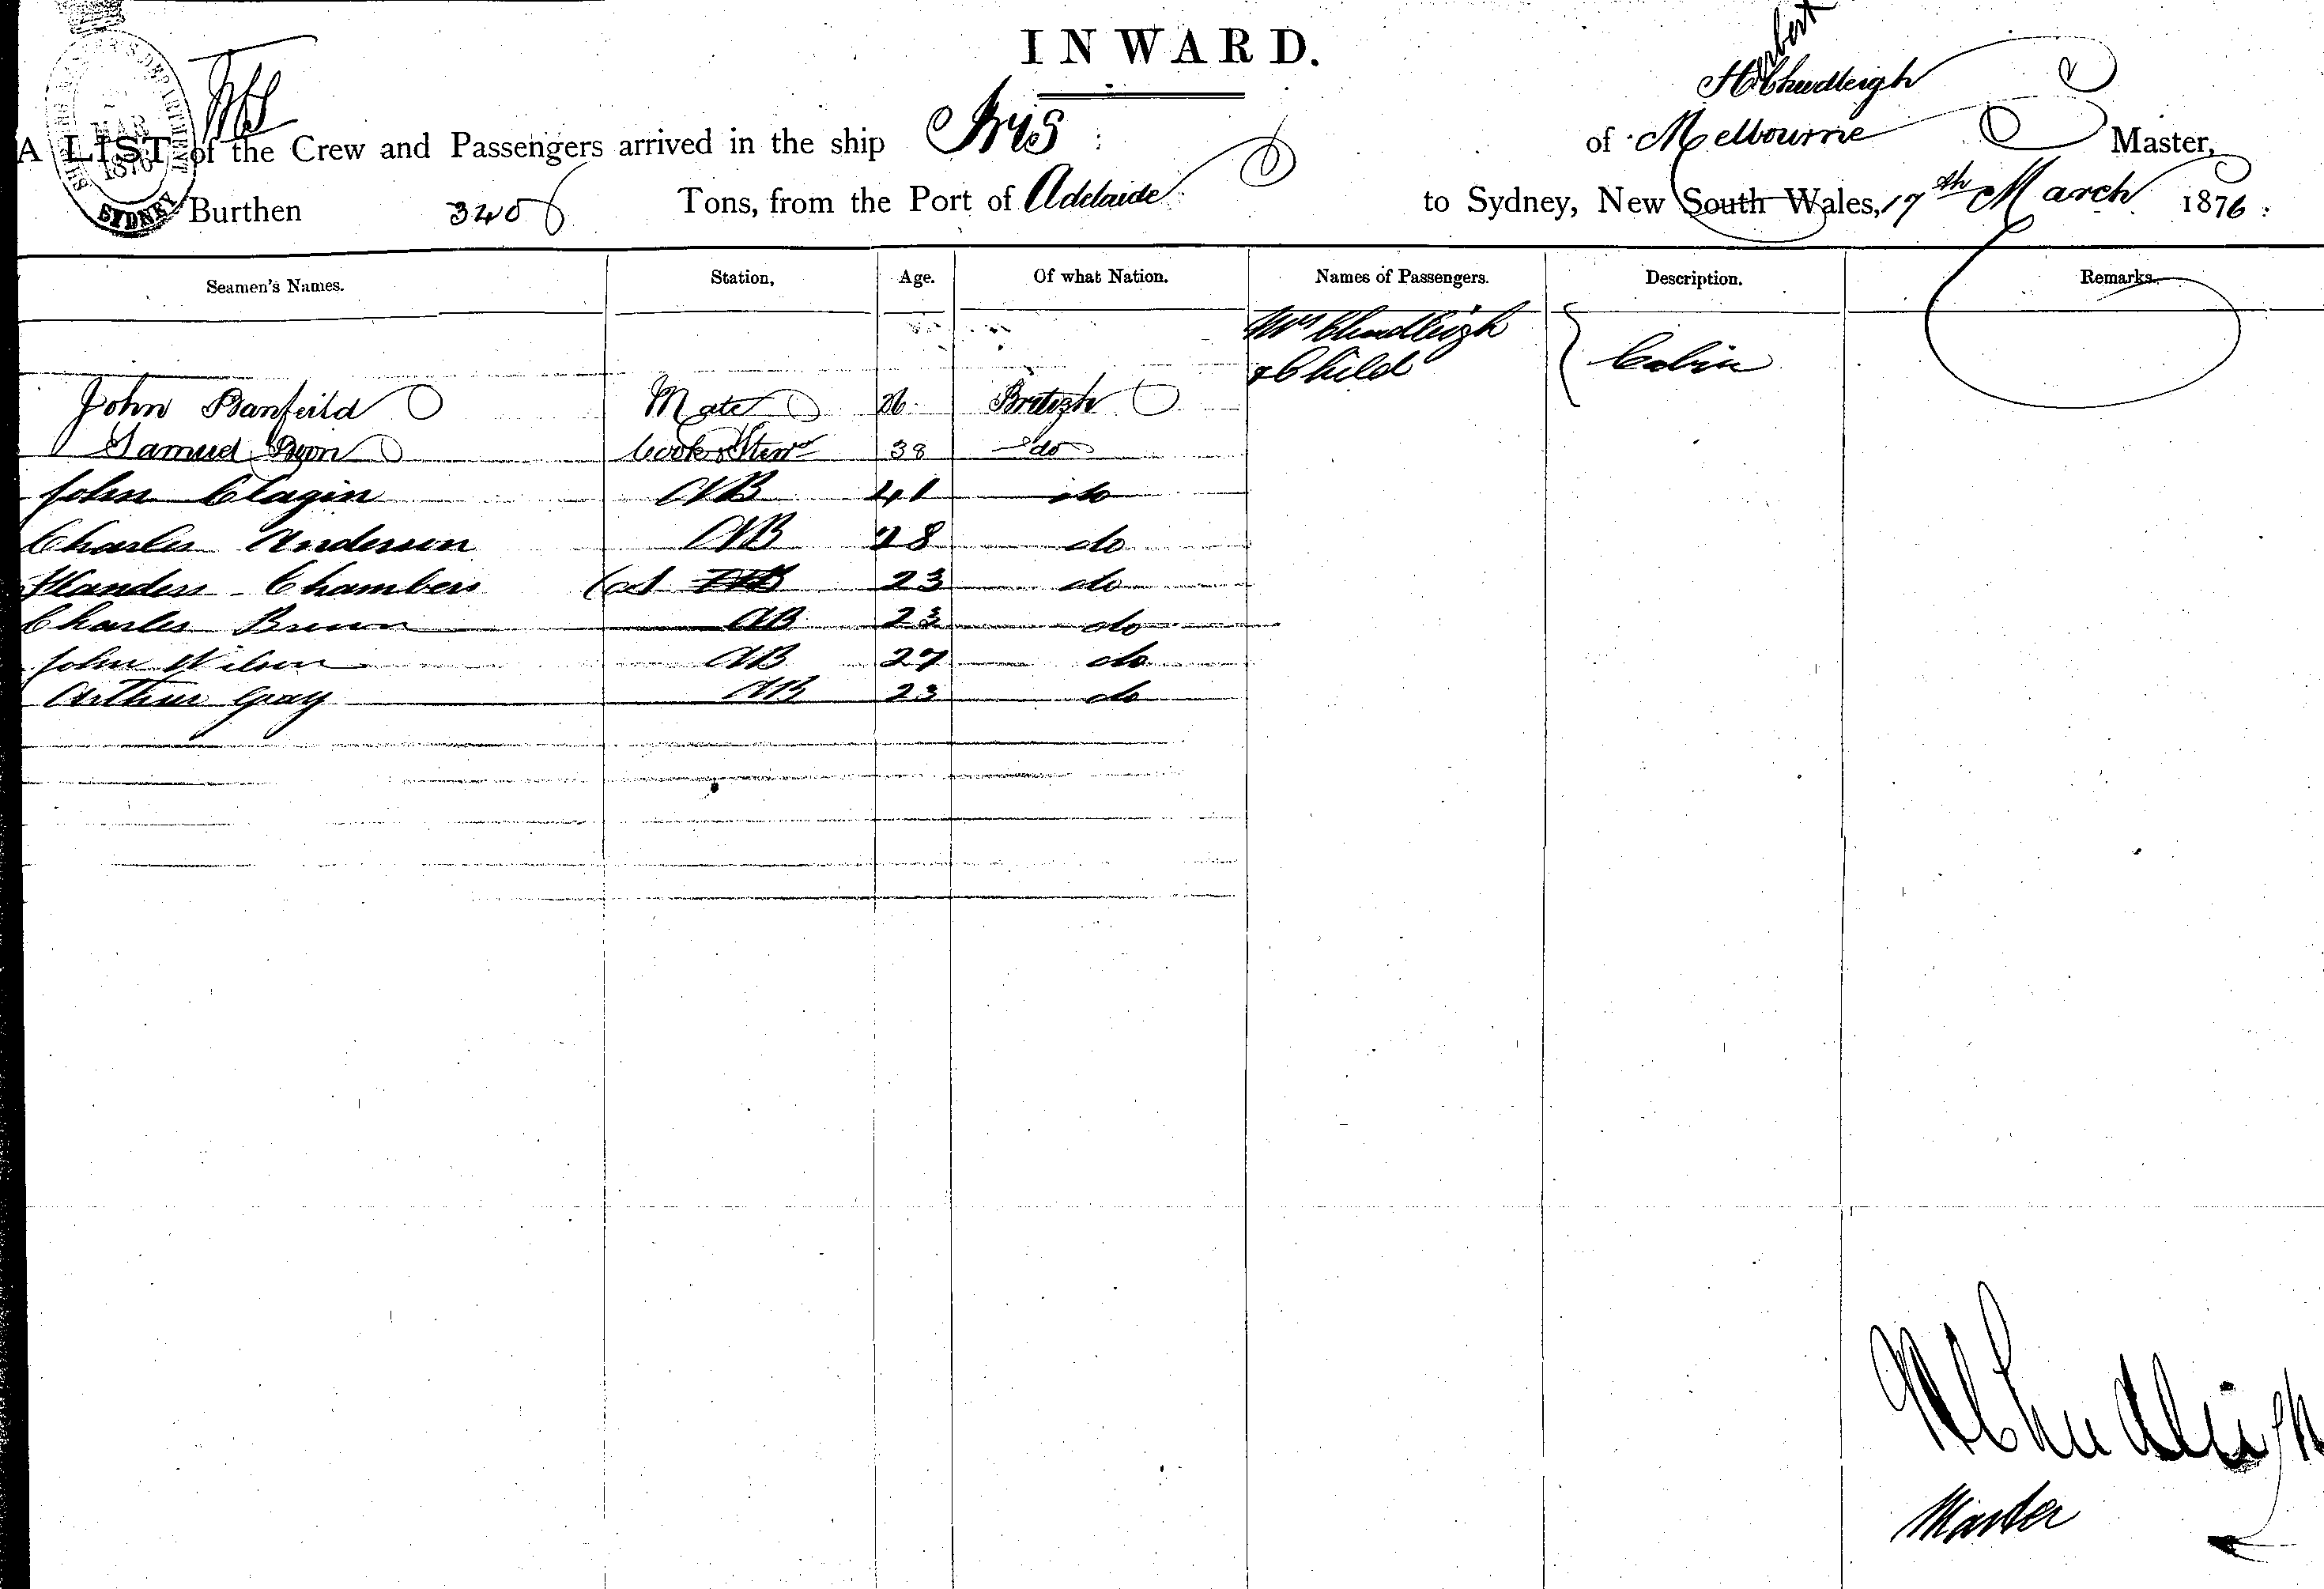 INWARD.
Herbert
H Chudleigh
SHIPPING MASTER'S DEPARTMENT
MAR
1876
SYDNEY
A LIST of the Crew and Passengers arrived in the ship Iris of Melbourne Master,
Burthen 340 Tons, from the Port of Adelaide to Sydney, New South Wales, 17th March 1876
Seamen's Names. Station, Age. Of what Nation. Names of Passengers. Description. Remarks.
Mrs Chudleigh
& Child Cabin
John Banfeild Mate 26 British
Samuel Cook & Stewd 38 do
John Clagin AB 41 do
Charles Anderson AB 28 do
Chambers AB 23 do
Charles Brown AB 23 do
John Wilson AB 27 do
Arthur Gray AB 23 do
H Chudleigh
Master